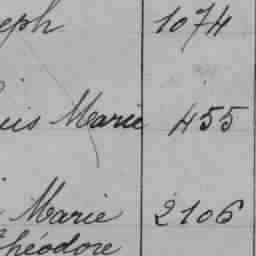 eph 1074
uis Marie 455
Marie 2106
Théodore